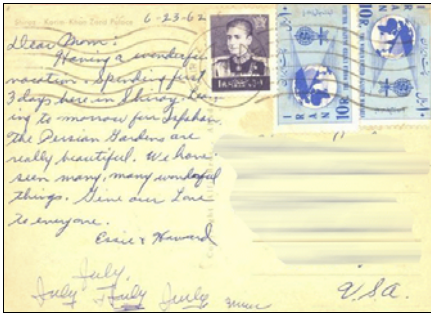 Shiraz - Karim-Khan Zand Palace
6-23-62
Dear Mom:
Having a wonderful
vacation. Spending first
3 days here in Shiraz. Leav-
ing to morrow for Isfahan.
The Persian Gardens are
really beautiful. We have
seen many, many wonderful
things. Give our Love
to everyone.
Essie & Howard
July
July July July
IRAN
10R
IRAN
20R
U.S.A.